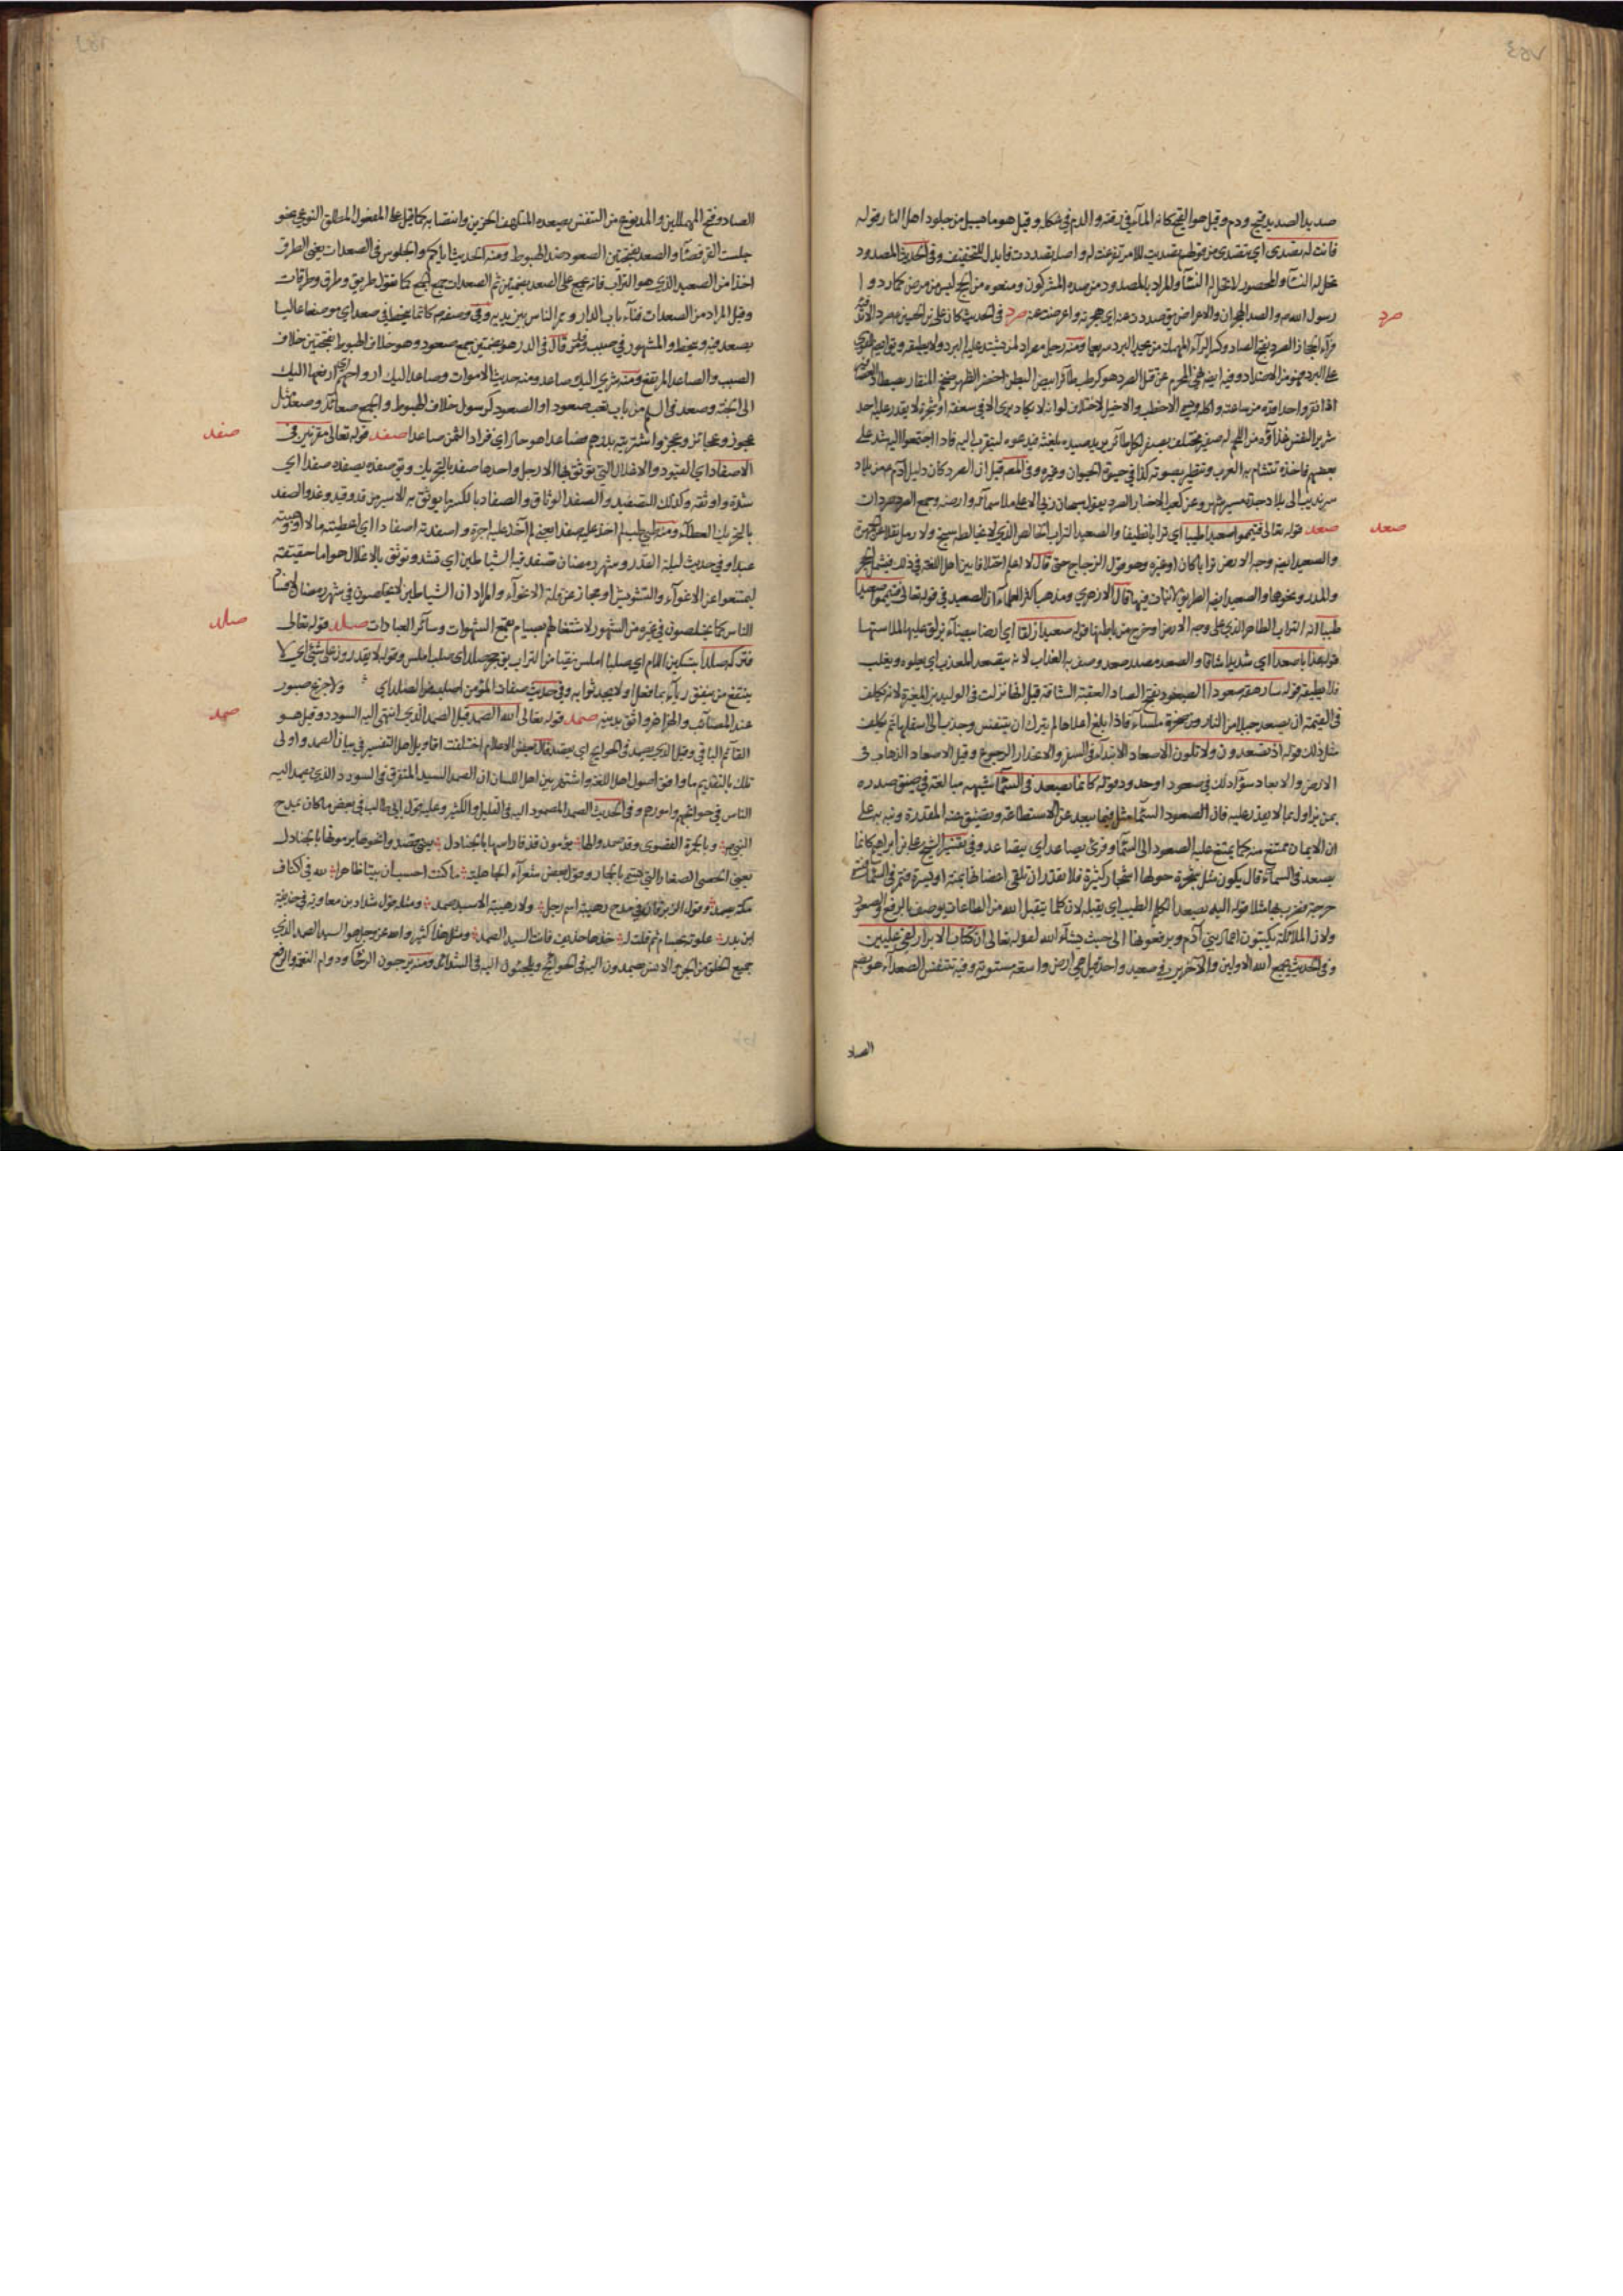 صديد الصديد قيح ودم وقيل هو القيح كانه المآء في رقته والدم في شكله وقيل هو ما يسيل من جلود اهل النار قوله
فانت له تصدى اي تتصدى من قولهم تصديت للامر تفرغت له واصله تصددت فابدل للتخفيف وفي الحديث المصدود
تحل له النسآء والمحصور لا تحل له النسآء والمراد بالمصدود من صده المشركون ومنعوه من الحج ليس من مرض كما ردوا
رسول الله والصد الهجران والاعراض يق صددت عنه اي هجرته واعرضت عنه صرد في الحديث كان علي بن الحسين صرد
صرد
فرآء الحجاز الصرد بفتح الصاد وكسر الرآء المهملة من يجد البرد سريعا ومنه رجل مصراد لمن يشتد عليه البرد ولا يطيقه
على البرد وفيه نهى المحرم عن قتل الصرد هو كرطب طآئر ابيض البطن اخضر الظهر ضخم المنقار يصطاد العصافير
اذا نقر واحدا قده من ساعته واكله ويسمى الاخطب والاخيل لاختلاف لونه لا يكاد يرى الا في سعفة او شجرة لا يقدر عليه احد
شرير النفس غذآؤه من اللحم له صفير مختلف يصفر لكل طآئر يريد صيده بلغته فيدعوه ليتقرب اليه فاذا اجتمعوا اليه شد على
بعضهم فاخذه تتشأم به العرب وتتطير بصوته كذا في حيوة الحيوان وغيره وفي قيل ان الصرد كان دليل آدم من بلاد
سرنديب الى بلاد جدة مسير شهر وعن كعب الاحبار الصرد يقول سبحان ربي الاعلى ملأ سمائه وارضه وجمع الصرد صردان
صعد قوله تعالى فتيمموا صعيدا طيبا اي ترابا نظيفا والصعيد التراب الخالص الذي لا يخالطه سبخ ولا رمل
صعد
والصعيد ايضا وجه الارض ترابا كان او غيره وهو قول الزجاج حتى قال لا اعلم اختلافا بين اهل اللغة في ذلك فيشمل الحجر
والمدر ونحوهما والصعيد ايضا الطريق لا نبات فيها قال الازهري ومذهب اكثر العلمآء ان الصعيد في قوله تعالى فتيمموا صعيدا
طيبا انه التراب الطاهر الذي على وجه الارض او خرج من باطنها قوله صعيدا زلقا اي ارضا بيضآء يزلق عليها لملاستها
قوله عذابا صعدا اي شديدا شاقا والصعد مصدر صعد وصف به العذاب لانه يتصعد المعذب اي يعلوه ويغلبه
فلا يطيقه قوله سارهقه صعودا الصعود بفتح الصاد العقبة الشاقة قيل انها نزلت في الوليد بن المغيرة لانه يكلف
في القيمة ان يصعد جبلا من النار من صخرة ملسآء فاذا بلغ اعلاها لم يترك ان يتنفس وجذب الى اسفلها ثم يكلف
مثل ذلك قوله اذ تصعدون ولا تلوون الاصعاد الابتدآء في السفر والانحدار الرجوع وقيل الاصعاد الذهاب في
الارض والابعاد سوآء ذلك في صعود او حدود وقوله كانما يصعد في السمآء شبهه مبالغة في ضيق صدره
بمن يزاول ما لا يقدر عليه فان الصعود السمآء مثل فيما يبعد عن الاستطاعة وتضيق عنه المقدرة ونبه به على
ان الايمان يمتنع منه كما يمتنع عليه الصعود الى السمآء وقرئ يصاعد اي يتصاعد وفي تفسير الشيخ علي بن ابراهيم كانما
يصعد في السمآء قال يكون مثل شجرة حولها اشجار كثيرة فلا تقدر ان تلقى اغصانها يمنة او يسرة فتمر في السمآء
حرجة فضرب بها مثلا قوله اليه يصعد الكلم الطيب اي يقبله لان كلما يتقبل الله من الطاعات يوصف بالرفع والصعود
ولان الملآئكة يكتبون اعمال بني آدم ويرفعونها الى حيث يشآء الله لقوله تعالى ان كتاب الابرار لفي عليين
وفي الحديث يجمع الله الاولين والآخرين في صعيد واحد قيل هي ارض واسعة مستوية وفيه تتنفس الصعدآء هو بضم
الصاد
الصاد وفتح المهملتين والمد نوع من التنفس يصعده المتلهف الحزين وانتصابه كما قيل على المفعول المطلق النوعي نحو
جلست القرفصآء والصعد بضمتين الصعود ضد الهبوط ومنه الحديث اياكم والجلوس في الصعدات يعني الطرق
اخذا من الصعيد الذي هو التراب فانه يجمع على الصعد بضمتين ثم الصعدات جمع الجمع كما تقول طريق وطرق وطرقات
وقيل المراد من الصعدات فنآء باب الدار وممر الناس بين يديه وفي وصفه كانما ينحط في صعد اي موضعا عاليا
يصعد فيه وينحط والمشهور في صبب قال في الدر هو بضمتين جمع صعود وهو خلاف الهبوط بفتحتين خلاف
الصبب والصاعد المرتفع ومنه شري اليك صاعد ومنه حديث الاموات وصاعد اليك ارواحهم اي ارفعها اليك
الى الجنة وصعد في السلم من باب تعب صعودا والصعود كرسول خلاف الهبوط والجمع صعآئد وصعد مثل
عجوز وعجآئز وعجز واشتريته بدرهم فصاعدا هو حال اي فزاد الثمن صاعدا صفد قوله تعالى مقرنين في
صفد
الاصفاد اي القيود والاغلال التي توثق بها الارجل واحدها صفد بالتحريك ويق صفده يصفده صفدا اي
شده واوثقه وكذلك التصفيد والصفد الوثاق والصفاد بالكسر ما يوثق به الاسير من قد وقيد وغل والصفد
بالتحريك العطآء ومنه اصفدته اصفادا اي اعطيته مالا او وهبته
عبدا وفي حديث ليلة القدر وشهر رمضان تصفد فيه الشياطين اي تشد وتوثق بالاغلال هو اما حقيقته
ليمتنعوا عن الاغوآء والتشويش او مجاز عن قلة الاغوآء والمراد ان الشياطين لا يخلصون في شهر رمضان لافساد
الناس كما يخلصون في غيره من الشهور لاشتغالهم بصيام يقمع الشهوات وسآئر العبادات صلد قوله تعالى
صلد
فتركه صلدا بتسكين اللام اي صلبا املس نقيا من التراب يق حجر صلد اي صلب املس وقوله لا يقدرون على شيء اي لا
ينتفع من ينفق رئآء بما فعل ولا يجد ثوابه وفي حديث صفات المؤمن اصلب من الصلد اي ولا جزع صبور
عند المصآئب والهزاهز واثق بدينه صمد قوله تعالى الله الصمد قيل الصمد الذي انتهى اليه السودد وقيل هو
صمد
القآئم الباقي وقيل الذي يصمد في الحوآئج اي يقصد قال بعض الاعلام اختلفت اقاويل اهل التفسير في بيان الصمد واولى
تلك بالتقديم ما وافق اصول اهل اللغة واشتهر بين اهل اللسان ان الصمد السيد المتفوق في السودد الذي يصمد اليه
الناس في حوآئجهم وامورهم وفي الحديث الصمد المصمود اليه في القليل والكثير وعليه قول ابي طالب في بعض ما كان يمدح
النبي وبالجمرة القصوى وقد صمدوا لها يؤمون قذفا راسها بالجنادل يعني قصدوا نحوها يرمونها بالجنادل
يعني الحصى الصغار التي تسمى بالجمار وقول بعض شعرآء الجاهلية ما كنت احسب ان بيتا ظاهرا لله في اكناف
مكة يصمد وقول الزبرقان في مدح رهيبة اسم رجل ولا رهيبة الا سيد صمد ومثله قول شداد بن معاوية في حذيفة
ابن بدر علوته بحسام ثم قلت له خذها حذيف فانت السيد الصمد ومثل هذا كثير والله عز وجل هو السيد الصمد الذي
جميع الخلق من الجن والانس يصمدون اليه في الحوآئج ويلجئون اليه في الشدآئد ومنه يرجون الرخآء ودوام النعمآء والرفع